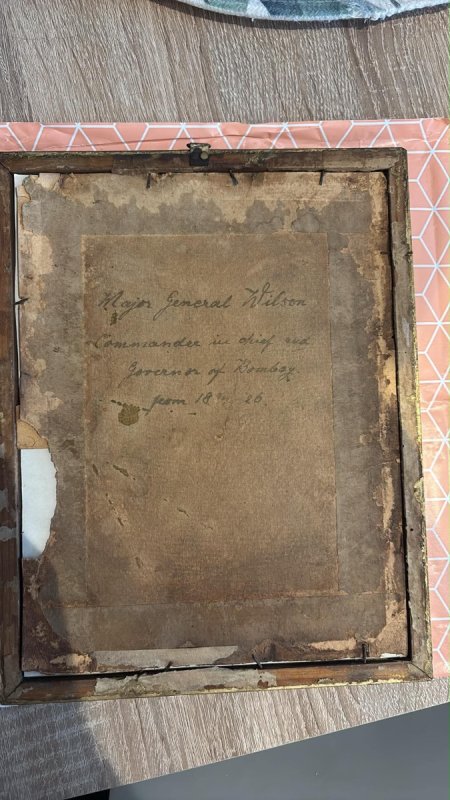 Major General Wilson
Commander in chief and
Governor of Bombay
from 18 26